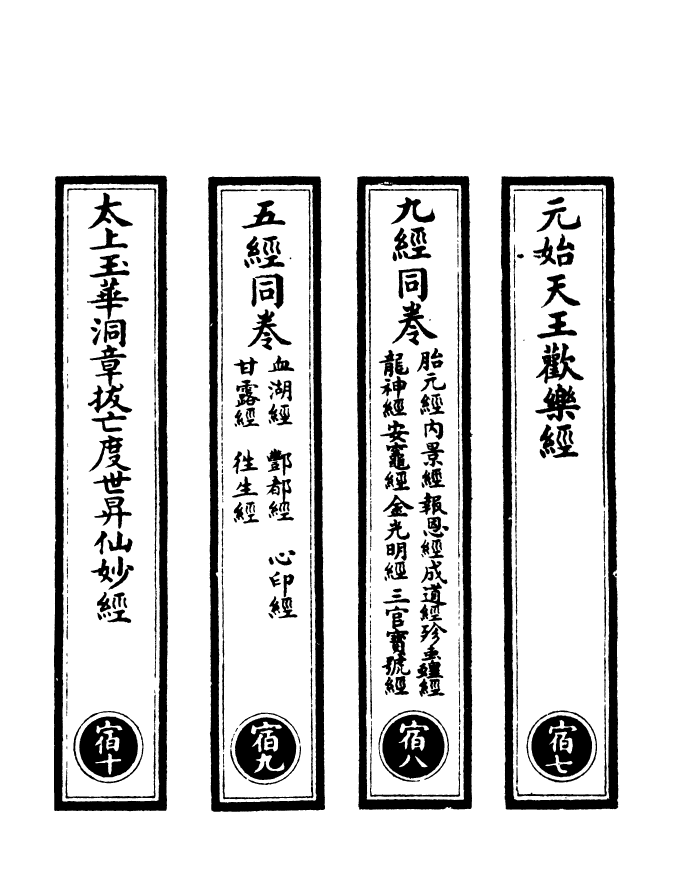 元始天王歡樂經
宿七
九經同卷
胎元經 內景經 報恩經 成道經 珍
龍神經 安竈經 金光明經 三官寶號經
宿八
五經同卷
血湖經 酆都經 心印經
甘露經 徃生經
宿九
太上玉華洞章拔亡度世昇仙妙經
宿十